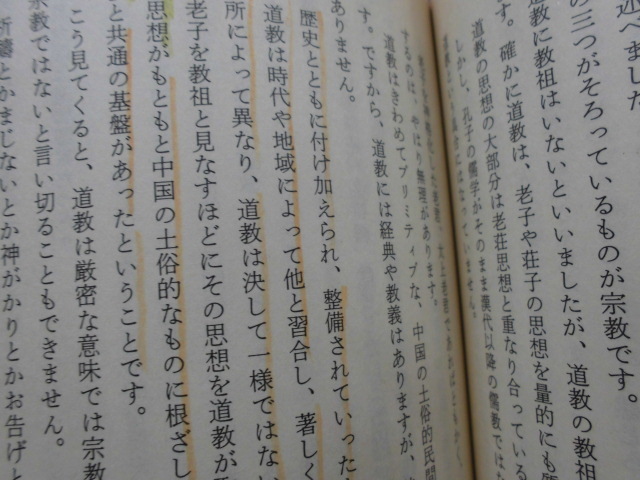 述べました
の三つがそろっているものが宗教です。
道教に教祖はいないといいましたが、道教の教祖
す。確かに道教は、老子や荘子の思想を量的にも
道教の思想の大部分は老荘思想と重なり合っている
しかし、孔子の儒学がそのまま漢代以降の儒教では
はなっていません。
するのは、やはり無理があります。
道教はきわめてプリミティブな、中国の土俗的民間
す。ですから、道教には経典や教義はありますが、
ありません。
歴史とともに付け加えられ、整備されていった
道教は時代や地域によって他と習合し、著しく
所によって異なり、道教は決して一様ではない
老子を教祖と見なすほどにその思想を道教が
思想がもともと中国の土俗的なものに根ざし
と共通の基盤があったということです。
こう見てくると、道教は厳密な意味では宗教
宗教ではないと言い切ることもできません。
祈禱とかまじないとか神がかりとかお告げと